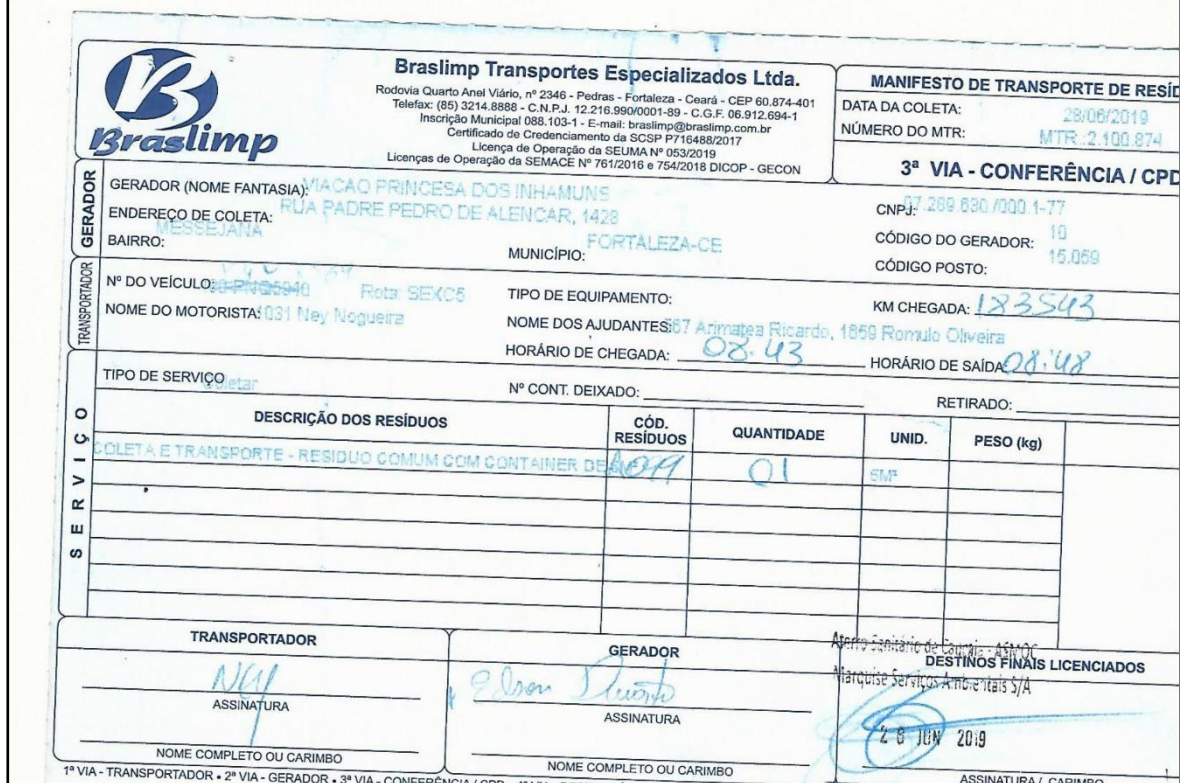 Braslimp
Braslimp Transportes Especializados Ltda.
Rodovia Quarto Anel Viário, nº 2346 - Pedras - Fortaleza - Ceará - CEP 60.874-401
Telefax: (85) 3214.8888 - C.N.P.J. 12.216.990/0001-89 - C.G.F. 06.912.694-1
Inscrição Municipal 088.103-1 - E-mail: braslimp@braslimp.com.br
Certificado de Credenciamento da SCSP P716488/2017
Licença de Operação da SEUMA Nº 053/2019
Licenças de Operação da SEMACE Nº 761/2016 e 754/2018 DICOP - GECON
MANIFESTO DE TRANSPORTE DE RESÍD
DATA DA COLETA: 28/06/2019
NÚMERO DO MTR: MTR.:2.100.874
3ª VIA - CONFERÊNCIA / CPD
GERADOR
GERADOR (NOME FANTASIA): VIACAO PRINCESA DOS INHAMUNS
CNPJ: 07.289.630./000.1-77
ENDEREÇO DE COLETA: RUA PADRE PEDRO DE ALENCAR, 1428
CÓDIGO DO GERADOR: 10
BAIRRO: MESSEJANA
MUNICÍPIO: FORTALEZA-CE
CÓDIGO POSTO: 15.059
TRANSPORTADOR
Nº DO VEÍCULO: Rota: SEXC5
TIPO DE EQUIPAMENTO:
KM CHEGADA: 183543
NOME DO MOTORISTA: 1031 Ney Nogueira
NOME DOS AJUDANTES: 567 Arimatea Ricardo, 1859 Romulo Oliveira
HORÁRIO DE CHEGADA: 08:43
HORÁRIO DE SAÍDA: 08:48
SERVIÇO
TIPO DE SERVIÇO Coletar
Nº CONT. DEIXADO:
RETIRADO:
DESCRIÇÃO DOS RESÍDUOS CÓD. RESÍDUOS QUANTIDADE UNID. PESO (kg)
COLETA E TRANSPORTE - RESIDUO COMUM COM CONTAINER DE 01 5M³
TRANSPORTADOR
Ney
ASSINATURA
NOME COMPLETO OU CARIMBO
GERADOR
Edson
ASSINATURA
NOME COMPLETO OU CARIMBO
Aterro Sanitário de Caucaia - ASMOC
DESTINOS FINAIS LICENCIADOS
Marquise Serviços Ambientais S/A
28 JUN 2019
ASSINATURA / CARIMBO
1ª VIA - TRANSPORTADOR • 2ª VIA - GERADOR • 3ª VIA - CONFERÊNCIA / CPD